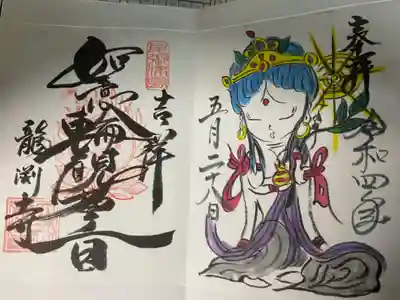 奉拝
令和四年
五月二十八日
吉祥
如意輪観世音
龍渕寺